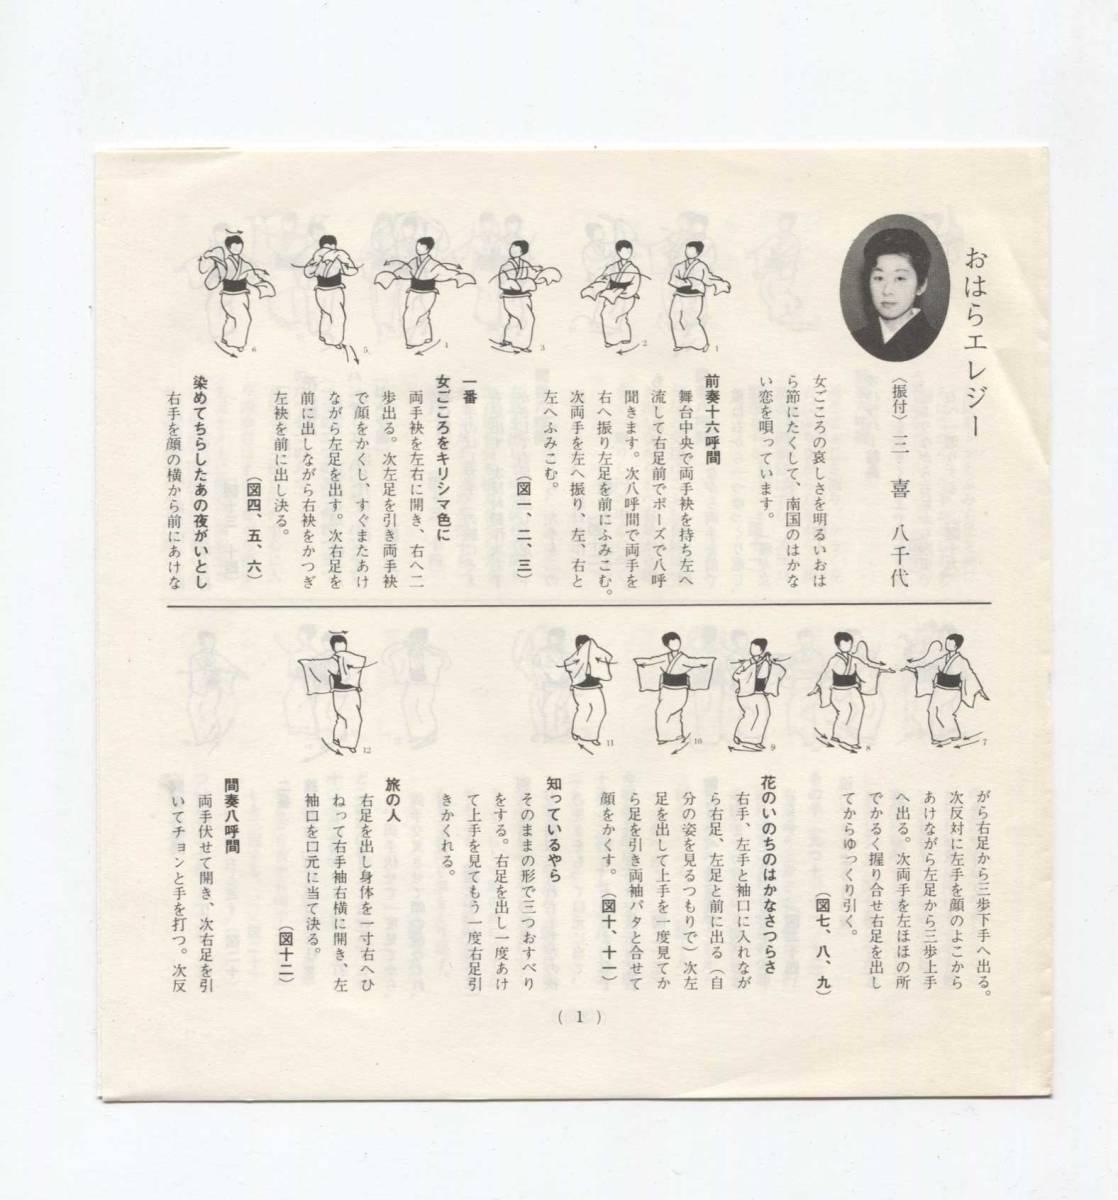 おはらエレジー
〈振付〉三喜八千代
女ごころの哀しさを明るいおは
ら節にたくして、南国のはかな
い恋を唄っています。
前奏十六呼間
舞台中央で両手袂を持ち左へ
流して右足前でポーズで八呼
聞きます。次八呼間で両手を
右へ振り左足を前にふみこむ。
次両手を左へ振り、左、右と
左へふみこむ。
(図一、二、三)
一番
女ごころをキリシマ色に
両手袂を左右に開き、右へ二
歩出る。次左足を引き両手袂
で顔をかくし、すぐまたあけ
ながら左足を出す。次右足を
前に出しながら右袂をかつぎ
左袂を前に出し決る。
(図四、五、六)
染めてちらしたあの夜がいとし
右手を顔の横から前にあけな
1
2
3
4
5
6
がら右足から三歩下手へ出る。
次反対に左手を顔のよこから
あけながら左足から三歩上手
へ出る。次両手を左ほほの所
でかるく握り合せ右足を出し
てからゆっくり引く。
(図七、八、九)
花のいのちのはかなさつらさ
右手、左手と袖口に入れなが
ら右足、左足と前に出る(自
分の姿を見るつもりで)次左
足を出して上手を一度見てか
ら足を引き両袖パタと合せて
顔をかくす。(図十、十一)
知っているやら
そのままの形で三つおすべり
をする。右足を出し一度あけ
て上手を見てもう一度右足引
きかくれる。
旅の人
右足を出し身体を一寸右へひ
ねって右手袖右横に開き、左
袖口を口元に当て決る。
(図十二)
間奏八呼間
両手伏せて開き、次右足を引
いてチョンと手を打つ。次反
7
8
9
10
11
12
(1)